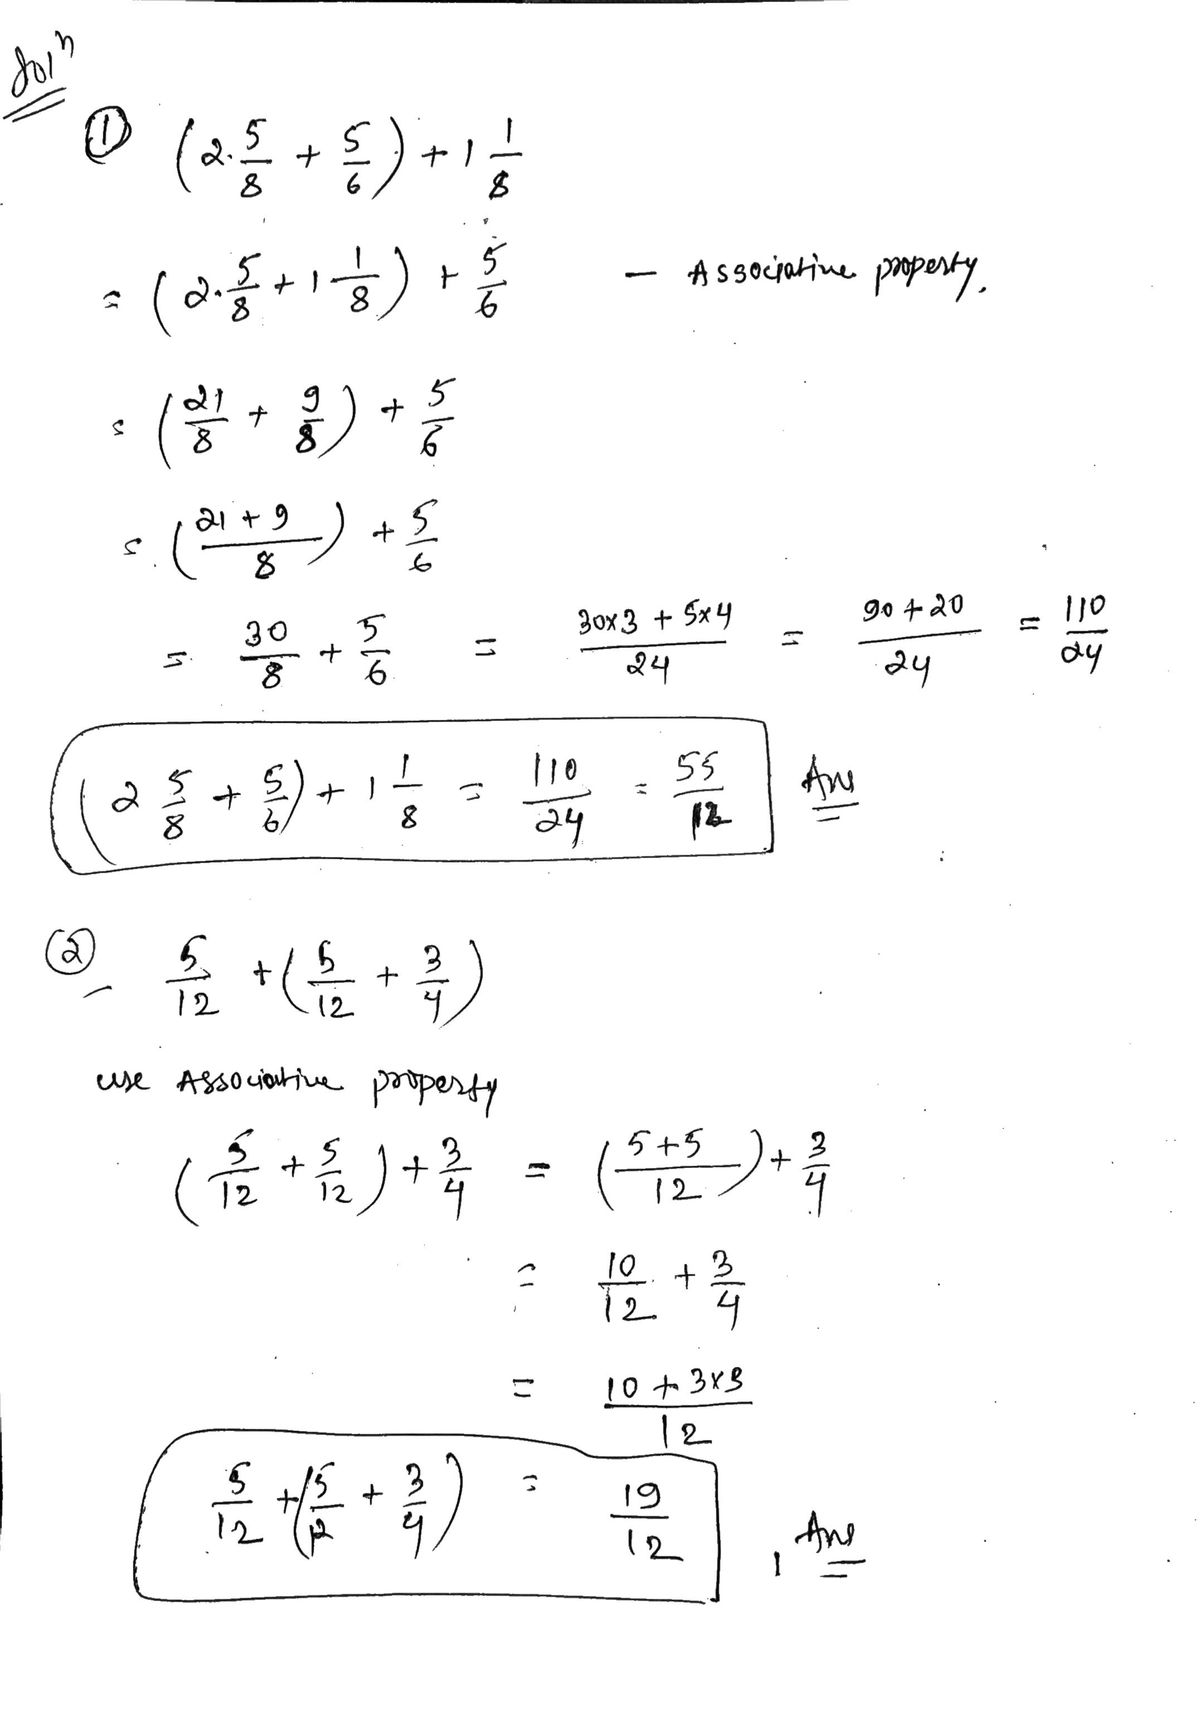 Solⁿ
① (2·5/8 + 5/6) + 1 1/8
= (2·5/8 + 1 1/8) + 5/6 — Associative property.
= (21/8 + 9/8) + 5/6
= (21 + 9 / 8) + 5/6
= 30/8 + 5/6 = 30×3 + 5×4 / 24 = 90 + 20 / 24 = 110/24
(2 5/8 + 5/6) + 1 1/8 = 110/24 = 55/12 Ans
② 5/12 + (5/12 + 3/4)
use Associative property
(5/12 + 5/12) + 3/4 = (5+5 / 12) + 3/4
= 10/12 + 3/4
= 10 + 3×3 / 12
5/12 + (5/12 + 3/4) = 19/12 , Ans